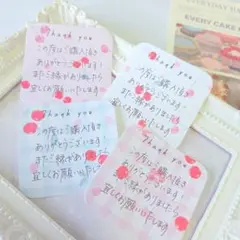 Thank you
この度はご購入頂き
ありがとうございます!
またご縁がありましたら
宜しくお願い致します
Thank you
この度はご購入頂き
ありがとうございます!
またご縁がありましたら
宜しくお願い致します
Thank you
この度はご購入頂き
ありがとうございます!
またご縁がありましたら
宜しくお願いいたします
Thank you
この度はご購入頂き
ありがとうございます!
またご縁がありましたら
宜しくお願い致します
EVERY CAKE